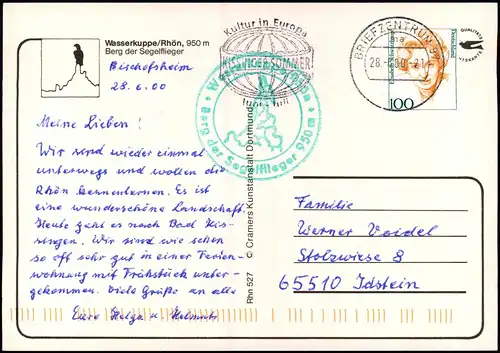 Wasserkuppe/Rhön, 950 m
Berg der Segelflieger
Bischofsheim
28.6.00
Meine Lieben!
Wir sind wieder einmal
unterwegs und wollen die
Rhön kennenlernen. Es ist
eine wunderschöne Landschaft.
Heute geht es nach Bad Kis-
singen. Wir sind wie schon
so oft sehr gut in einer Ferien-
wohnung mit Frühstück unter-
gekommen. Viele Grüße an alle
Eure Helga u. Helmut
Rhn 527 © Cramers Kunstanstalt Dortmund
Kultur in Europa
KISSINGER SOMMER
Berg der Segelflieger 950 m
BRIEFZENTRUM 97
ma
28.-6.00-21
Deutschland
100
Familie
Werner Voidel
Stolzwiese 8
65510 Idstein